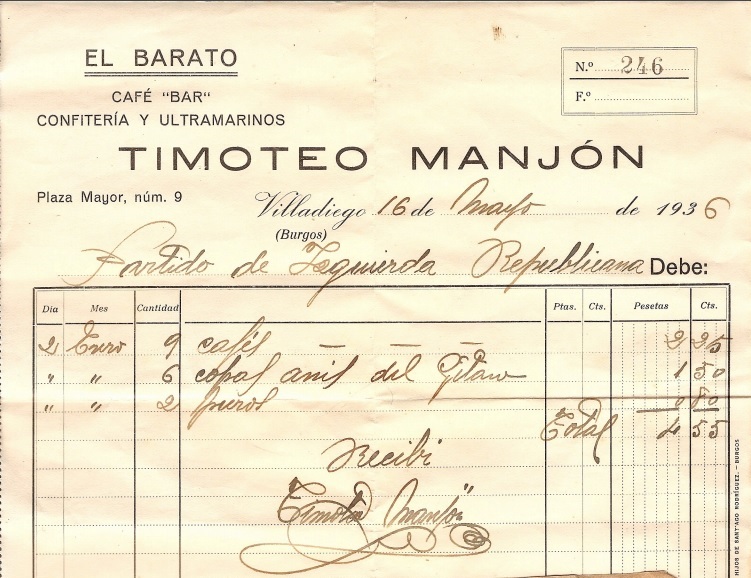 EL BARATO
CAFÉ "BAR"
CONFITERÍA Y ULTRAMARINOS
N.º 246
F.º
TIMOTEO MANJÓN
Plaza Mayor, núm. 9
Villadiego 16 de Mayo de 1936
(Burgos)
Partido de Izquierda Republicana Debe:
Dia Mes Cantidad Ptas. Cts. Pesetas Cts.
2 Enro 9 cafés — — — 2 25
" " 6 copas anis del Gitano 1 50
" " 2 puros 0 80
Total 4 55
Recibi
Timoteo Manjón
HIJOS DE SANTIAGO RODRÍGUEZ. – BURGOS